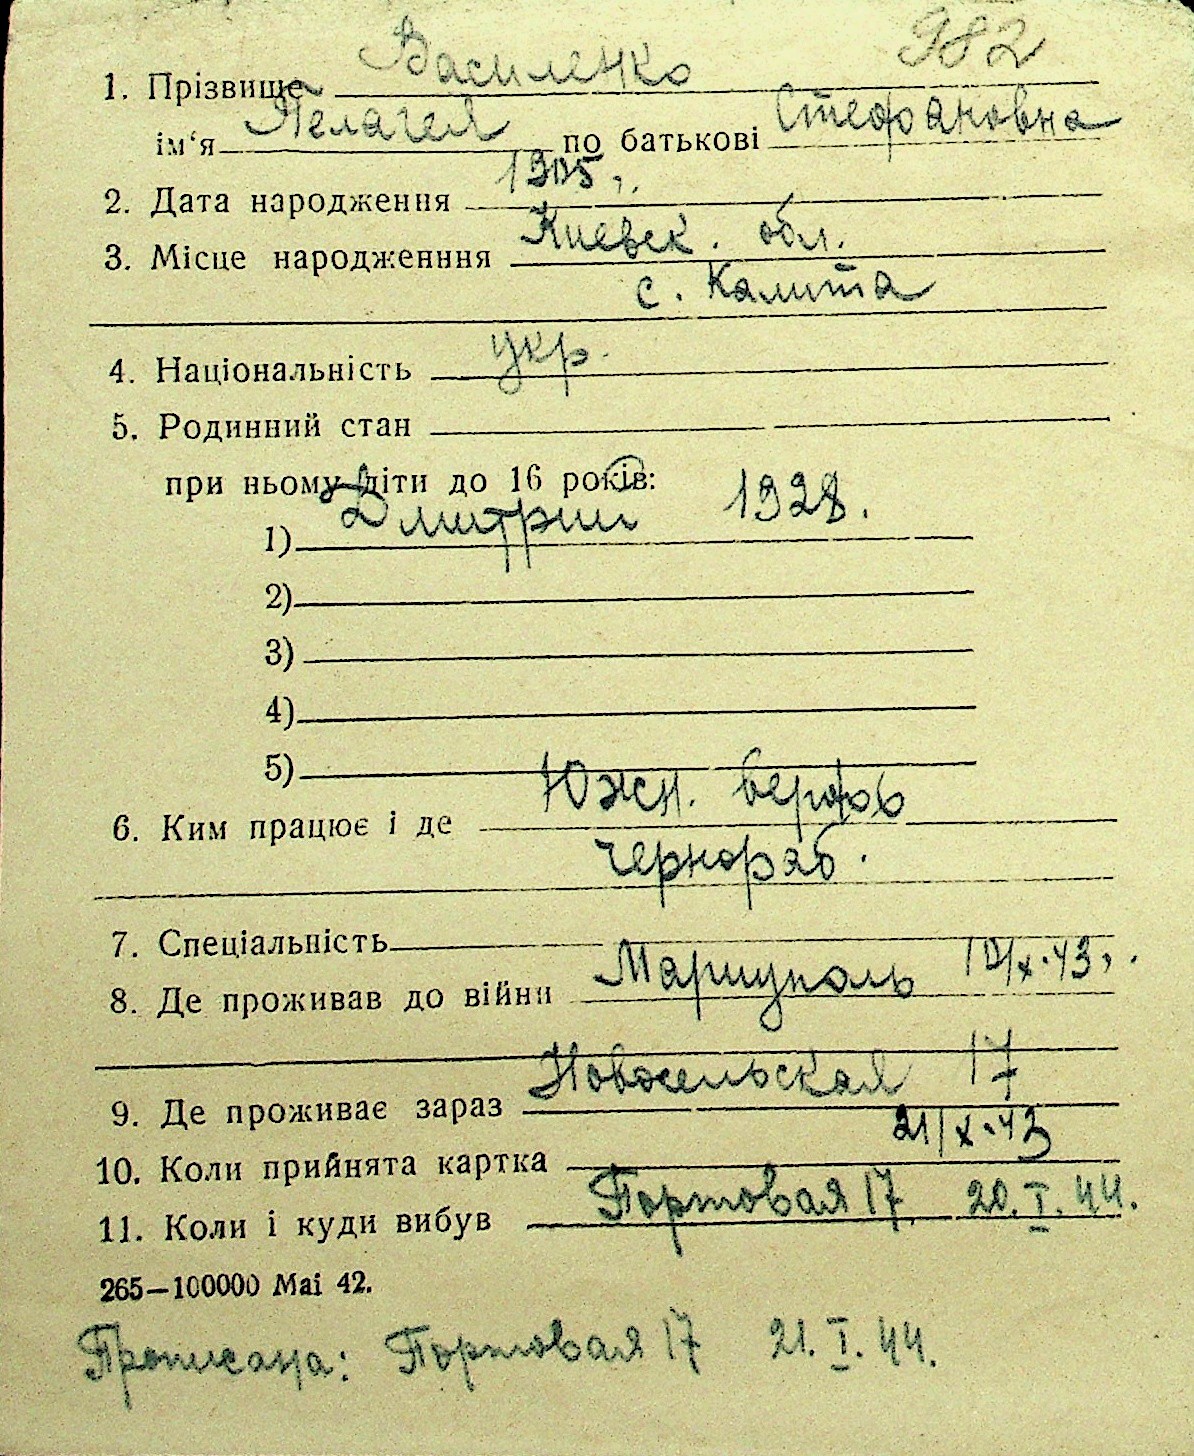 982
1. Прізвище Василенко
ім‘я Пелагея по батькові Стефановна
2. Дата народження 1905 г.
3. Місце народженння Киевск. обл.
с. Калита
4. Національність укр.
5. Родинний стан
при ньому діти до 16 років:
1) Дмитрий 1928.
2)
3)
4)
5)
6. Ким працює і де Южн. верфь
чернораб.
7. Спеціальність
8. Де проживав до війни Мариуполь 10/X-43 г.
9. Де проживає зараз Новосельская 17
10. Коли прийнята картка 21/X-43
11. Коли і куди вибув Портовая 17. 20.I.44.
265—100000 Mai 42.
Прописана: Портовая 17 21.I.44.